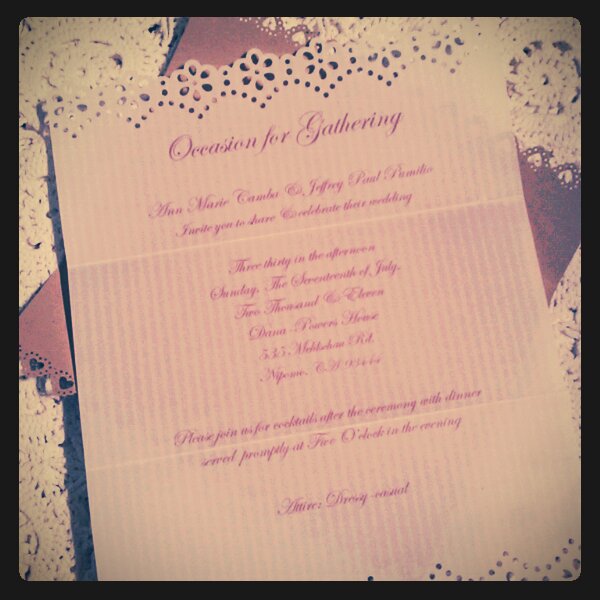 Occasion for Gathering
Ann Marie Camba & Jeffrey Paul Pumilio
Invite you to share & celebrate their wedding
Three thirty in the afternoon
Sunday, The Seventeenth of July,
Two Thousand & Eleven
Dana-Powers House
535 Mehlschau Rd.
Nipomo, CA 93444
Please join us for cocktails after the ceremony with dinner
served promptly at Five O'clock in the evening
Attire: Dressy-casual